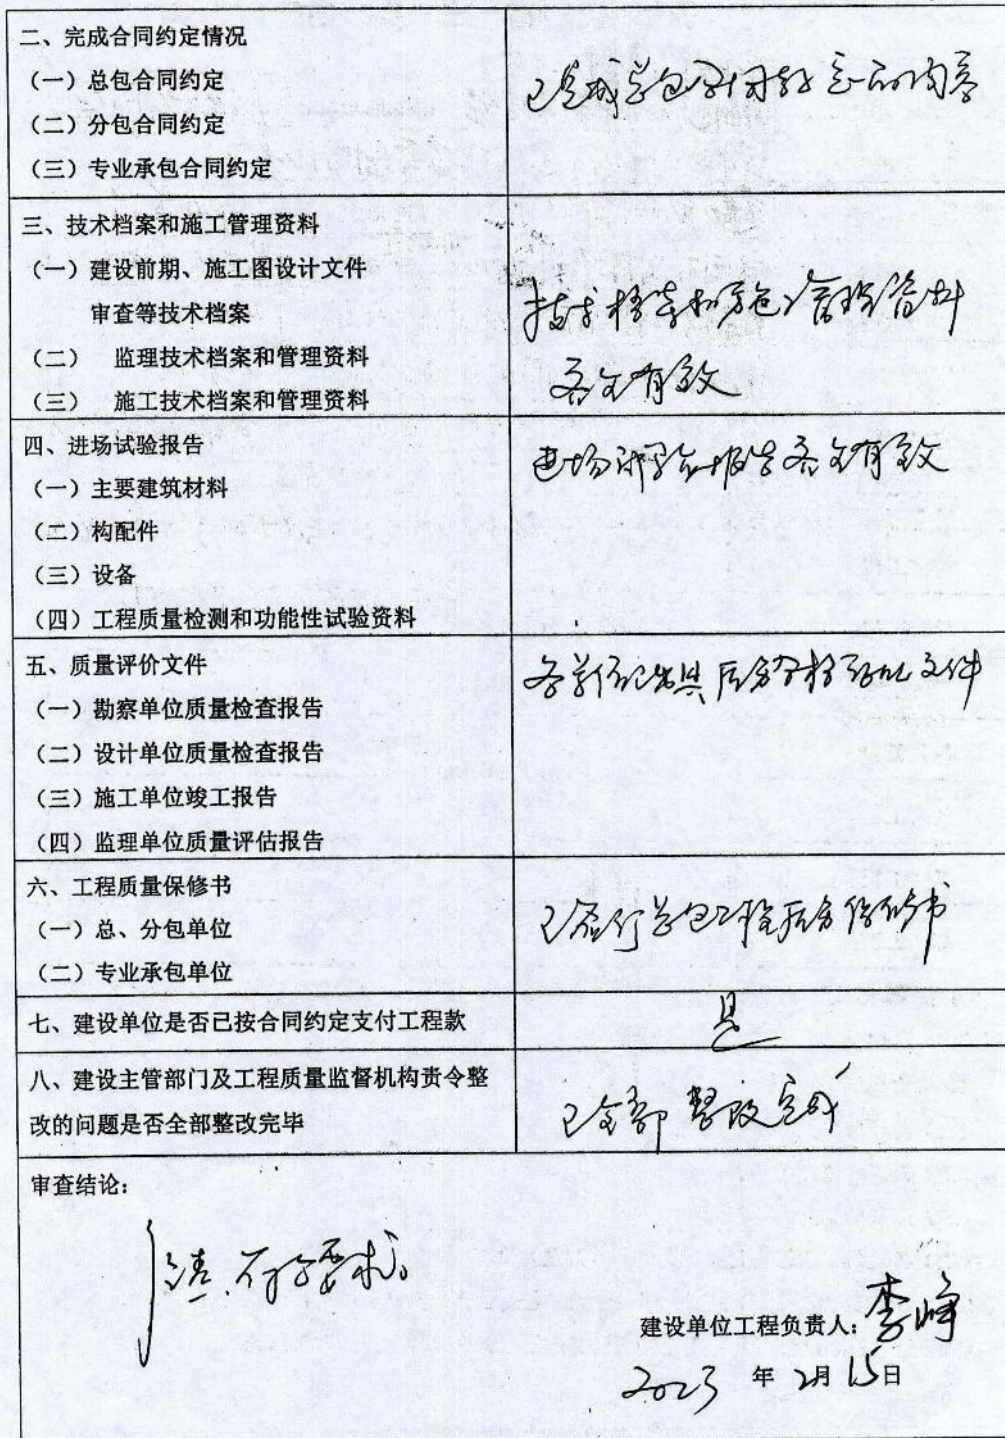 二、完成合同约定情况
（一）总包合同约定
（二）分包合同约定
（三）专业承包合同约定
已完成总包合同约定的内容
三、技术档案和施工管理资料
（一）建设前期、施工图设计文件
审查等技术档案
（二） 监理技术档案和管理资料
（三） 施工技术档案和管理资料
技术档案和施工管理资料
齐全有效
四、进场试验报告
（一）主要建筑材料
（二）构配件
（三）设备
（四）工程质量检测和功能性试验资料
进场试验报告齐全有效
五、质量评价文件
（一）勘察单位质量检查报告
（二）设计单位质量检查报告
（三）施工单位竣工报告
（四）监理单位质量评估报告
各单位已出具质量合格证明文件
六、工程质量保修书
（一）总、分包单位
（二）专业承包单位
已签订总包工程质量保修书
七、建设单位是否已按合同约定支付工程款
是
八、建设主管部门及工程质量监督机构责令整
改的问题是否全部整改完毕
已全部整改完成
审查结论：
符合要求。
建设单位工程负责人：李峰
2023 年 2月 15日